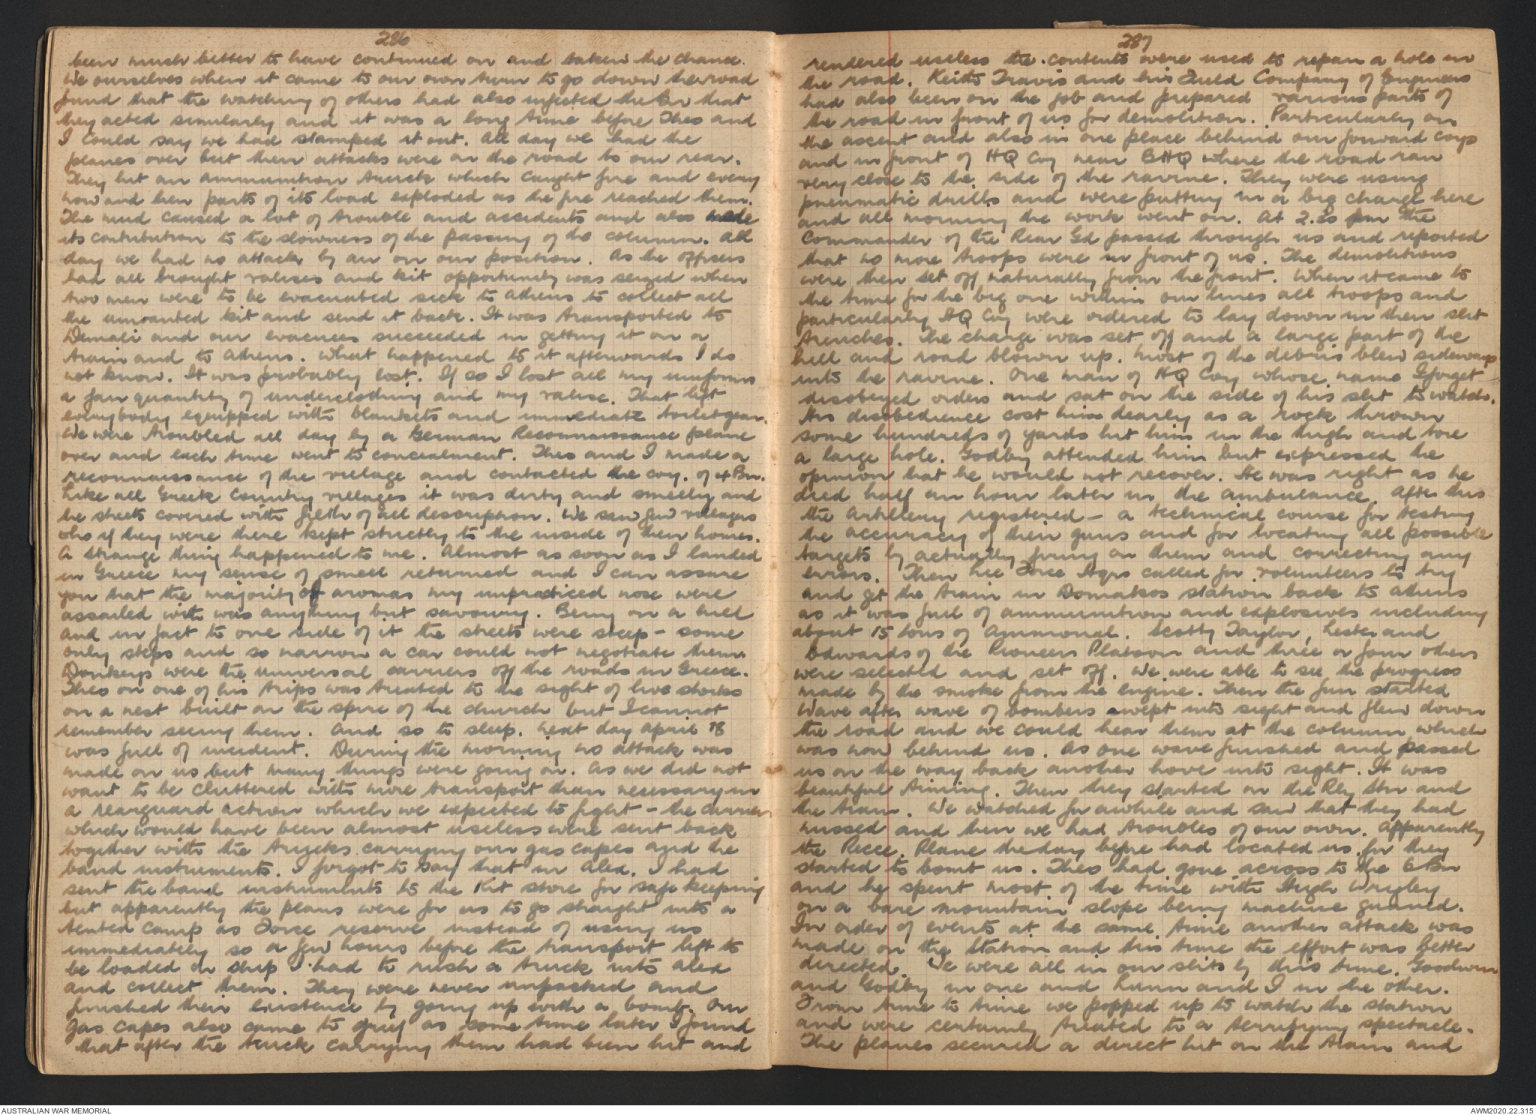 286
been much better to have continued on and taken the chance.
We ourselves when it came to our own turn to go down the road
found that the watching of others had also infected the Bn that
they acted similarly and it was a long time before Theo and
I could say we had stamped it out. All day we had the
planes over but their attacks were on the road to our rear.
They hit an ammunition truck which caught fire and every
now and then parts of its load exploded as the fire reached them.
The mud caused a lot of trouble and accidents and also made
its contribution to the slowness of the passing of the column. All
day we had no attack by air on our position. As the officers
had all brought valises and kit opportunity was seized when
two men were to be evacuated sick to Athens to collect all
the unwanted kit and send it back. It was transported to
and our evacuees succeeded in getting it on a
train and to Athens. What happened to it afterwards I do
not know. It was probably lost. If so I lost all my uniforms
a fair quantity of underclothing and my valise. That left
everybody equipped with blankets and immediate toilet gear.
We were troubled all day by a German Reconnaissance plane
over and each time went to concealment. Theo and I made a
reconnaissance of the village and contacted the coy. of 4 Bn.
Like all Greek country villages it was dirty and smelly and
the streets covered with filth of all description. We saw few villagers
who if they were there kept strictly to the inside of their homes.
A strange thing happened to me. Almost as soon as I landed
in Greece my sense of smell returned and I can assure
you that the majority of aromas my unpracticed nose were
assailed with was anything but savoury. Being on a hill
and in fact to one side of it the streets were steep - some
only steps and so narrow a car could not negotiate them.
Donkeys were the universal carriers off the roads in Greece.
Theo on one of his trips was treated to the sight of live storks
on a nest built on the spire of the church but I cannot
remember seeing them. And so to sleep. Next day April 18
was full of incident. During the morning no attack was
made on us but many things were going on. As we did not
want to be cluttered with more transport than necessary in
a rearguard action which we expected to fight - the carriers
which would have been almost useless were sent back
together with the trucks carrying our gas capes and the
band instruments. I forgot to say that in Alex. I had
sent the band instruments to the Kit store for safe keeping
but apparently the plans were for us to go straight into a
tented camp as Force reserve instead of using us
immediately so a few hours before the transport left to
be loaded on ship I had to rush a truck into Alex
and collect them. They were never unpacked and
finished their existence by going up with a bomb. Our
gas capes also came to grief as some time later I found
that after the truck carrying them had been hit and
287
rendered useless the contents were used to repair a hole in
the road. Keith Travis and his Field Company of Engineers
had also been on the job and prepared various parts of
the road in front of us for demolition. Particularly on
the ascent and also in one place behind our forward coys
and in front of HQ Coy near BHQ where the road ran
very close to the side of the ravine. They were using
pneumatic drills and were putting in a big charge here
and all morning the work went on. At 2.30 pm the
Commander of the Rear Gd passed through us and reported
that no more troops were in front of us. The demolitions
were then set off naturally from the front. When it came to
the time for the big one within our lines all troops and
particularly HQ Coy were ordered to lay down in their slit
trenches. The charge was set off and a large part of the
hill and road blown up. Most of the debris blew sideways
into the ravine. One man of HQ Coy whose name I forget
disobeyed orders and sat on the side of his slit to watch.
His disobedience cost him dearly as a rock thrown
some hundreds of yards hit him in the thigh and tore
a large hole. Godby attended him but expressed the
opinion that he would not recover. He was right as he
died half an hour later in the ambulance. After this
the Artillery registered - a technical course for testing
the accuracy of their guns and for locating all possible
targets by actually firing on them and correcting any
errors. Then Force Hqrs called for volunteers to try
and get the train in Domokos station back to Athens
as it was full of ammunition and explosives including
about 15 tons of Ammonal. Scotty Taylor, Lester and
Edwards of the Pioneer Platoon and three or four others
were selected and set off. We were able to see the progress
made by the smoke from the engine. Then the fun started
Wave after wave of bombers swept into sight and flew down
the road and we could hear them at the column which
was now behind us. As one wave finished and passed
us on the way back another hove into sight. It was
beautiful timing. Then they started on the Rly Stn and
the train. We watched for awhile and saw that they had
missed and then we had troubles of our own. Apparently
the Recce. Plane the day before had located us for they
started to bomb us. Theo had gone across to the 6 Bn
and he spent most of the time with Hugh Wrigley
on a bare mountain slope being machine gunned.
In order of events at the same time another attack was
made on the Station and this time the effort was better
directed. We were all in our slits by this time. Goodwin
and Godby in one and and I in the other.
From time to time we popped up to watch the station
and were certainly treated to a terrifying spectacle.
The planes secured a direct hit on the train and
AUSTRALIAN WAR MEMORIAL
AWM2020.22.315